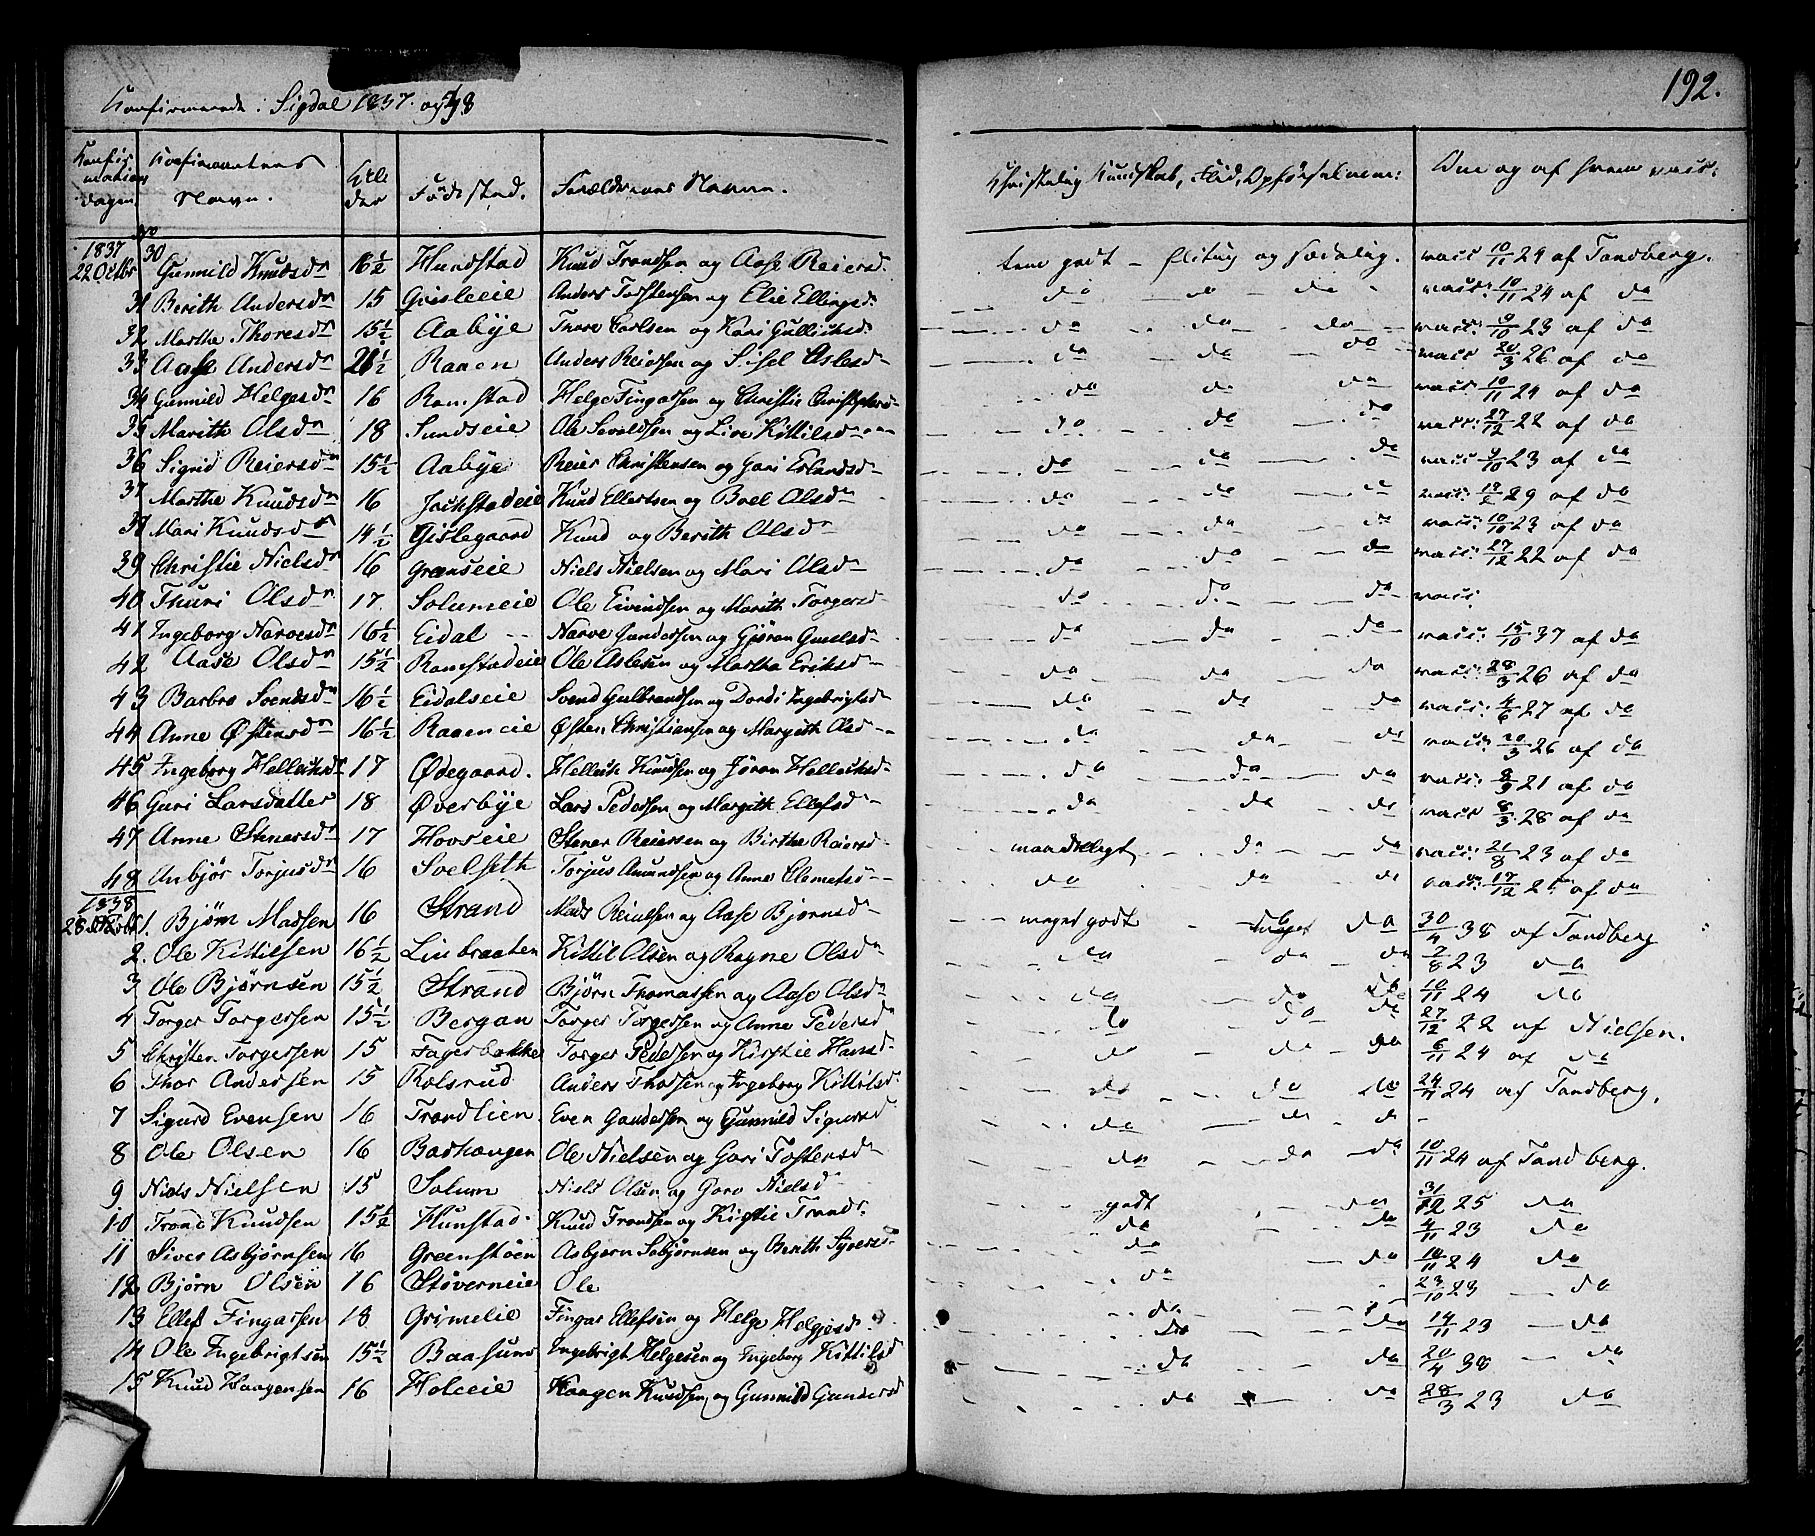 Konfirmerede i Sigdal 1837. og 38
192.
Konfirmations dagen Konfirmantens Navn. Alder Fødested. Forældrenes Navne. Christelig Kundskab, Flid, Opførsel Om og af hvem vacc:
1837 22 Octbr No 30 Gunnild Knudsdr 16½ Hunstad Knud Trondsen og Aase Reiersd. godt flitig og sædelig. vacc 10/11 24 af Tandberg.
31 Berith Andersdr 15 Gisleeie Anders Torstensen og Elie Ellingsd. do do do vacc: 10/11 24 af do
32 Marthe Thoresdr 15½ Aabye Thore Carlsen og Kari Gulliksd do do do vacc: 9/10 23 af do
33 Aase Andersdr Raaen Anders Reiersen og Sisel Aslesd do do do vacc 20/3 26 af do
34 Gunnild Helgesdr 16 Ramstad Helge Fingarsen og Christie do do do vacc: 10/11 24 af do
35 Marith Olsdr 18 Sundseie Ole og Live Kittilsd do do do vacc: 27/12 22 af do
36 Sigrid Reiersdr 15½ Aabye Reier Christensen og Gari Erlandsd do do do vacc 9/10 23 af do
37 Marthe Knudsdr 16 Knud Ellertsen og Boel Olsdr do do do vacc: 29 af do
38 Mari Knudsdr 14½ Gislegaard Knud og Berith Olsdr do do do vacc: 10/10 23 af do
39 Christie Nielsdr 16 Grønseie Niels Nielsen og Mari Olsdr do do do vacc: 27/12 22 af do
40 Thuri Olsdr 17. Solumeie Ole Eivindsen og Marith Torgersd do do do vacc.
41 Ingeborg Narvesdr 16½ Eidal Narve Gundersen og Gjøran do do do vacc: 15/10 37 af do
42 Aase Olsdr 15½ Ramstadeie Ole Aslesen og Martha Eriksd do do do vacc: 28/3 26 af do
43 Barbro Svendsdr 16½ Eidalseie Svend Gulbrandsen og Dordi Ingebrigtsd do do do vacc: 4/6 27 af do
44 Anne Østensdr 16½ Raaeneie Østen Christiansen og Margith Olsd do do do vacc: 20/3 26 af do
45 Ingeborg Helleiksdr 17 Ødegaard. Helleik Knudsen og Jøran Helleiksd do do do vacc: 8/9 21 af do
46 Guri Larsdatter 18 Øverbye Lars Pedersen og Margith Ellefsd do do do vacc 8/3 28 af do
47 Anne Stenersdr 17 Hovseie Stener Reiersen og Birthe Reiersd maadelligt do do vacc: 21/8 23 af do
48 Anbjør Torjusdr 16 Soelseth Torjus Amundsen og Anne Clemetsd do do do vacc: 17/12 25 af do
1838 28 Octbr 1. Bjørn Madsen 16 Strand Mads og Aase Bjørnsd meget godt do do 30/4 38 af Tandberg
2. Ole Kittilsen 16½ Liebraaten Kittil Olsen og Ragne Olsdr do do do 7/8 23 do
3 Ole Bjørnsen 15½ Strand Bjørn Thomassen og Aase Olsdr do do do 10/11 24 do
4 Torger Torgersen 15½ Bergan Torger Torgersen og Anne Pedersd do do do 27/12 22 af Nielsen.
5 Christen Torgersen 15 Fagerbakke Torger Pedersen og Kirstie Hansd do do do 6/11 24 af do
6 Thor Andersen 15 Rolsrud Anders Thorsen og Ingeborg Kittilsd. do do do 24/11 24 af Tandberg.
7 Sigurd Evensen 16 Trondlien Even Gundersen og Gunnild Sigursd do do do
8 Ole Olsen 16 Badhaugen Ole Nielsen og Gari Tostensdr do do do 10/11 24 af Tandberg.
9 Niels Nielsen 15 Solum Niels Olsen og Goro Nielsd godt do 31/12 25 do
10 Trond Knudsen 15½ Hunstad Knud Trondsen og Kirstie Tronds. do do 4/11 23 do
11 Siver Asbjørnsen 16 Greenstøen Asbjørn Sebjørnsen og Berith do do 10/11 24 do
12 Bjørn Olsen 16 Støverneie Ole do 23/10 23 do
13 Ellef Fingarsen 18 Grimelie Fingar Ellefsen og Helge Helgesd do do 14/11 23 do
14 Ole Ingebrigtsen 15½ Baasum Ingebrigt Helgesen og Ingeborg Kittilsd do do 20/4 38 do
15 Knud Haagensen 16 Holeeie Haagen Knudsen og Gunnild Gundersd do do 28/3 23 do